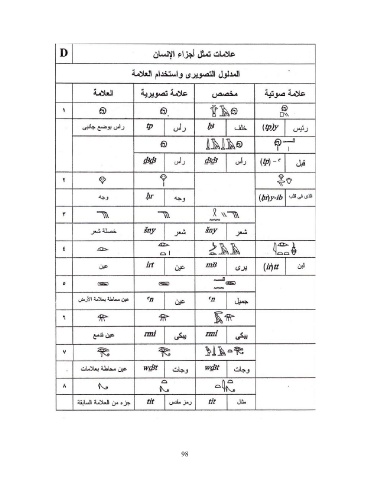 D علامات تمثل أجزاء الإنسان
المدلول التصويرى واستخدام العلامة
العلامة علامة تصويرية مخصص علامة صوتية
١
رأس بوضع جانبى tp رأس ḥꜣ خلف (tp)y رئيس
ḏꜣḏꜣ رأس ḏꜣḏꜣ رأس (tp) -ꜥ قبل
٢
وجه ḥr وجه (ḥr)y-ib الذى فى القلب
٣
خصلة شعر šny شعر šny شعر
٤
عين irt عين mꜣꜣ يرى (ir)tt لبن
٥
عين محاطة بعلامة الأرض ꜥn عين ꜥn جميل
٦
عين تدمع rmi يبكى rmi يبكى
٧
عين محاطة بعلامات wḏꜣt وجات wḏꜣt وجات
٨
جزء من العلامة السابقة tit رمز مقدس tit مثال
98